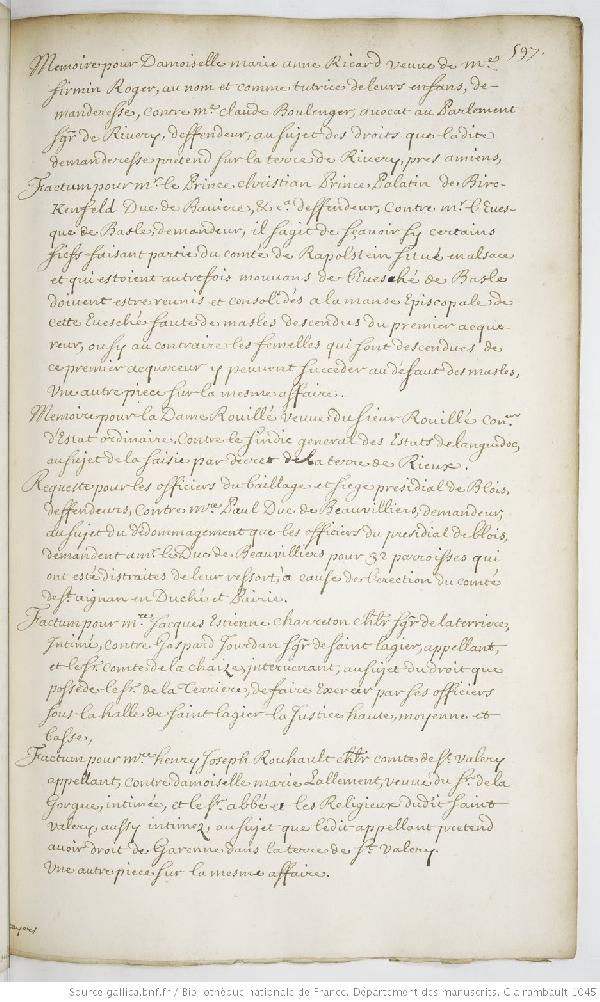 597.
Memoire pour Damoiselle marie anne Ricard veuve de m.e
firmin Roger, au nom et comme tutrice de leurs enfans, de-
manderesse, contre m.e Claude Boulenger, avocat au Parlement
sgr. de Rivery, deffendeur, au sujet des droits que ladite
demanderesse pretend sur la terre de Rivery, pres amiens,
Factum pour mr. le Prince christian Prince Palatin de Birc-
Kenfeld Duc de Baviere, &c.a deffendeur, Contre mr. l'Eves-
que de Basle, demandeur, il s'agit de sçavoir sy certains
fiefs faisant partie du comté de Rapolstein situé en alsace
et qui estoient autrefois mouvans de l'Evesché de Basle
doivent estre reunis et consolidés a la manse Episcopale de
cette Evesché faute de masles descendus du premier acque-
reur, ou sy au contraire les femelles qui sont descendues de
ce premier acquereur y peuvent succeder au défaut des masles,
Une autre piece sur la mesme affaire.
Memoire pour la Dame Rouillé veuve du sieur Rouillé con.er
d'Estat ordinaire, Contre le sindic general des Estats de languedoc,
au sujet de la saisie par decret de la terre de Rieux.
Requeste pour les officiers du bailliage et siege presidial de Blois,
deffendeurs, Contre m.re Paul Duc de Beauvilliers, demandeur,
au sujet du dedommagement que les officiers du presidial de blois,
demandent a mr. le Duc de Beauvilliers pour 32 parroisses qui
ont esté distraites de leur ressort, a cause de l'erection du comté
de st. aignan en Duché et Pairie.
Factum pour m.re Jacques Estienne charreton chlr. sgr. de laterriere,
Intimé, contre Gaspard Jourdan sgr. de saint lagier, appellant,
et le sr. comte de la chaize, intervenant, au sujet du droit que
possede le sr. de la Terriere, de faire Exercer par ses officiers
sous la halle de saint lagier la Justice haute, moyenne et
basse,
Factum pour m.re henry Joseph Rouhault chlr. comte de st. valery
appellant, contre damoiselle marie Lallement, veuve du sr. de la
Gorgue, intimée, et le sr. abbé et les Religieux dudit saint
valery, aussy intimez, au sujet que ledit appellant pretend
avoir droit de Garenne dans la terre de st. valery.
Une autre piece sur la mesme affaire.
Source gallica.bnf.fr / Bibliothèque nationale de France. Département des manuscrits. Clairambault 1045